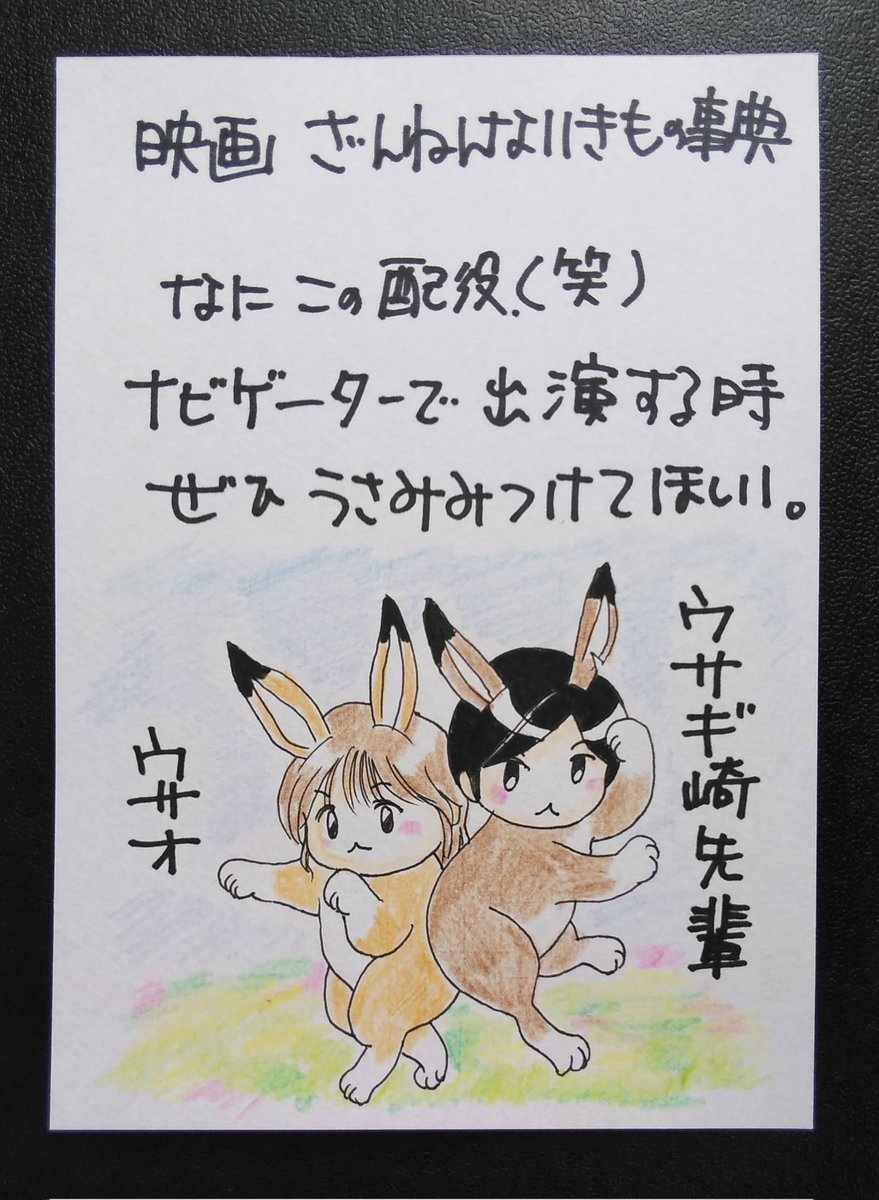 映画 ざんねんないきもの事典
なに この配役.(笑)
ナビゲーターで 出演する時
ぜひ うさみみつけてほしい。
ウサギ崎先輩
ウサオ